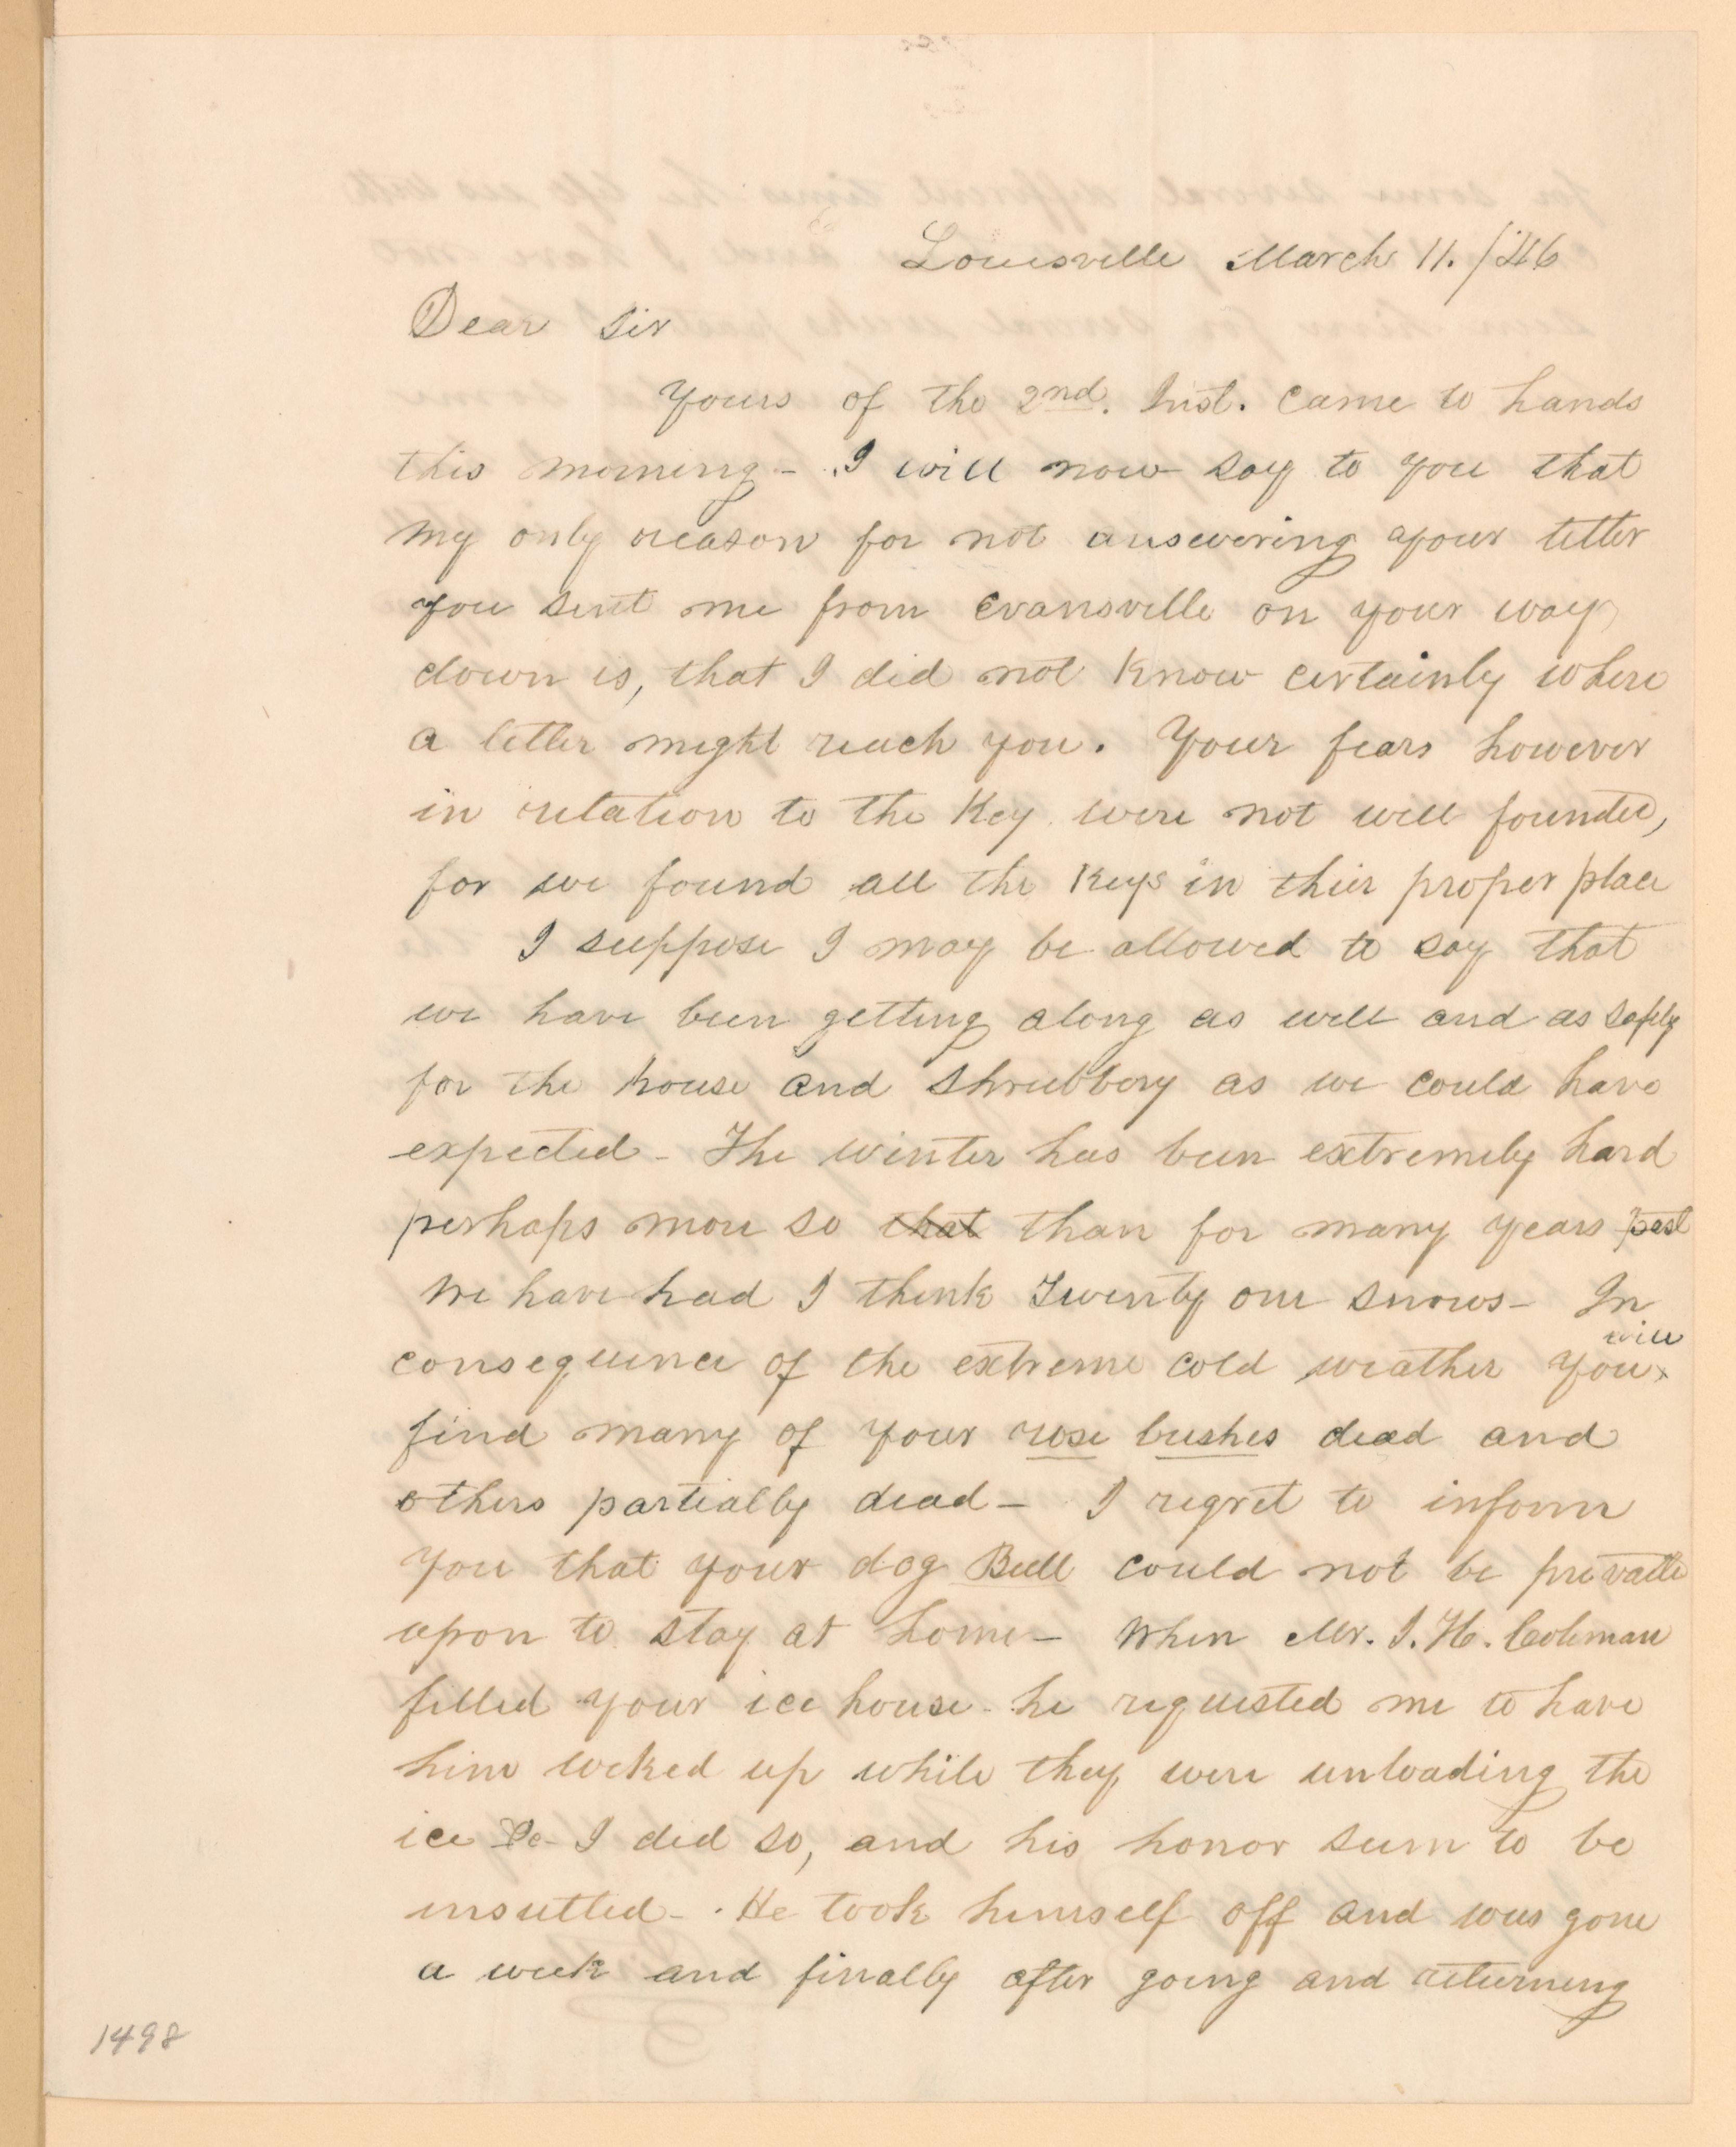 Louisville March 11. /46
Dear Sir
Yours of the 2nd. Inst. came to hands
this morning - I will now say to you that
my only reason for not answering your letter
you sent me from Evansville on your way
down is, that I did not know certainly where
a letter might reach you. Your fears however
in relation to the Key were not well founded,
for we found all the Keys in thier proper place
I suppose I may be allowed to say that
we have been getting along as well and as safely
for the house and shrubbery as we could have
expected - The winter has been extremely hard
perhaps more so that than for many years past
We have had I think Twenty one snows - In
consequence of the extreme cold weather you will
find many of your rose bushes dead and
others partially dead - I regret to inform
you that your dog Bull could not be prevailed
upon to stay at home - When Mr. J. H. Coleman
filled your ice house he requested me to have
him locked up while they were unloading the
ice &c - I did so, and his honor seem to be
insulted - He took himself off and was gone
a week and finally after going and returning
1498